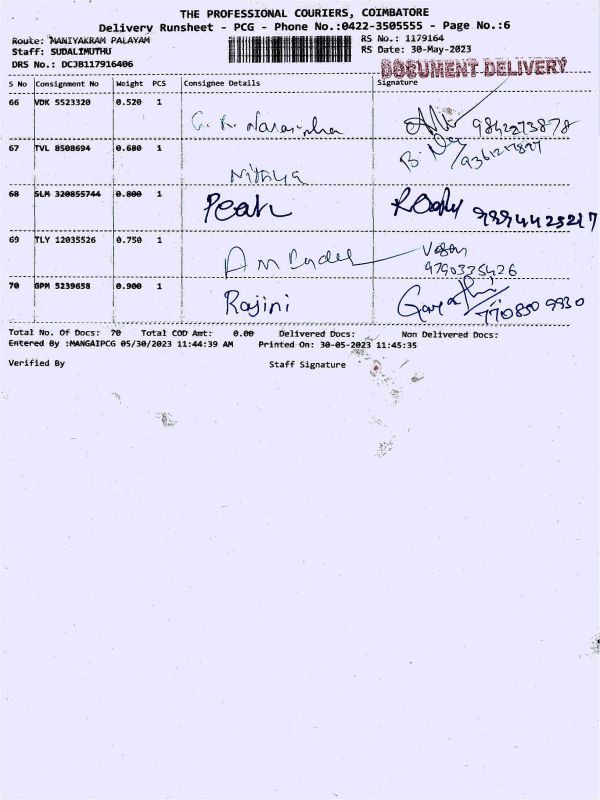 THE PROFESSIONAL COURIERS, COIMBATORE
Delivery Runsheet - PCG - Phone No.:0422-3505555 - Page No.:6
Route: MANIYAKRAM PALAYAM
RS No.: 1179164
Staff: SUDALIMUTHU
RS Date: 30-May-2023
DRS No.: DCJB117916406
DOCUMENT DELIVERY
S No Consignment No Weight PCS Consignee Details Signature
66 VDK 5523320 0.520 1 9842273878
67 TVL 8508694 0.680 1 Nithya
68 SLM 320855744 0.800 1 Peak
69 TLY 12035526 0.750 1 9790335426
70 GPM 5239658 0.900 1 Rajini Gayathri 770850 9930
Total No. Of Docs: 70 Total COD Amt: 0.00 Delivered Docs: Non Delivered Docs:
Entered By :MANGAIPCG 05/30/2023 11:44:39 AM Printed On: 30-05-2023 11:45:35
Verified By Staff Signature